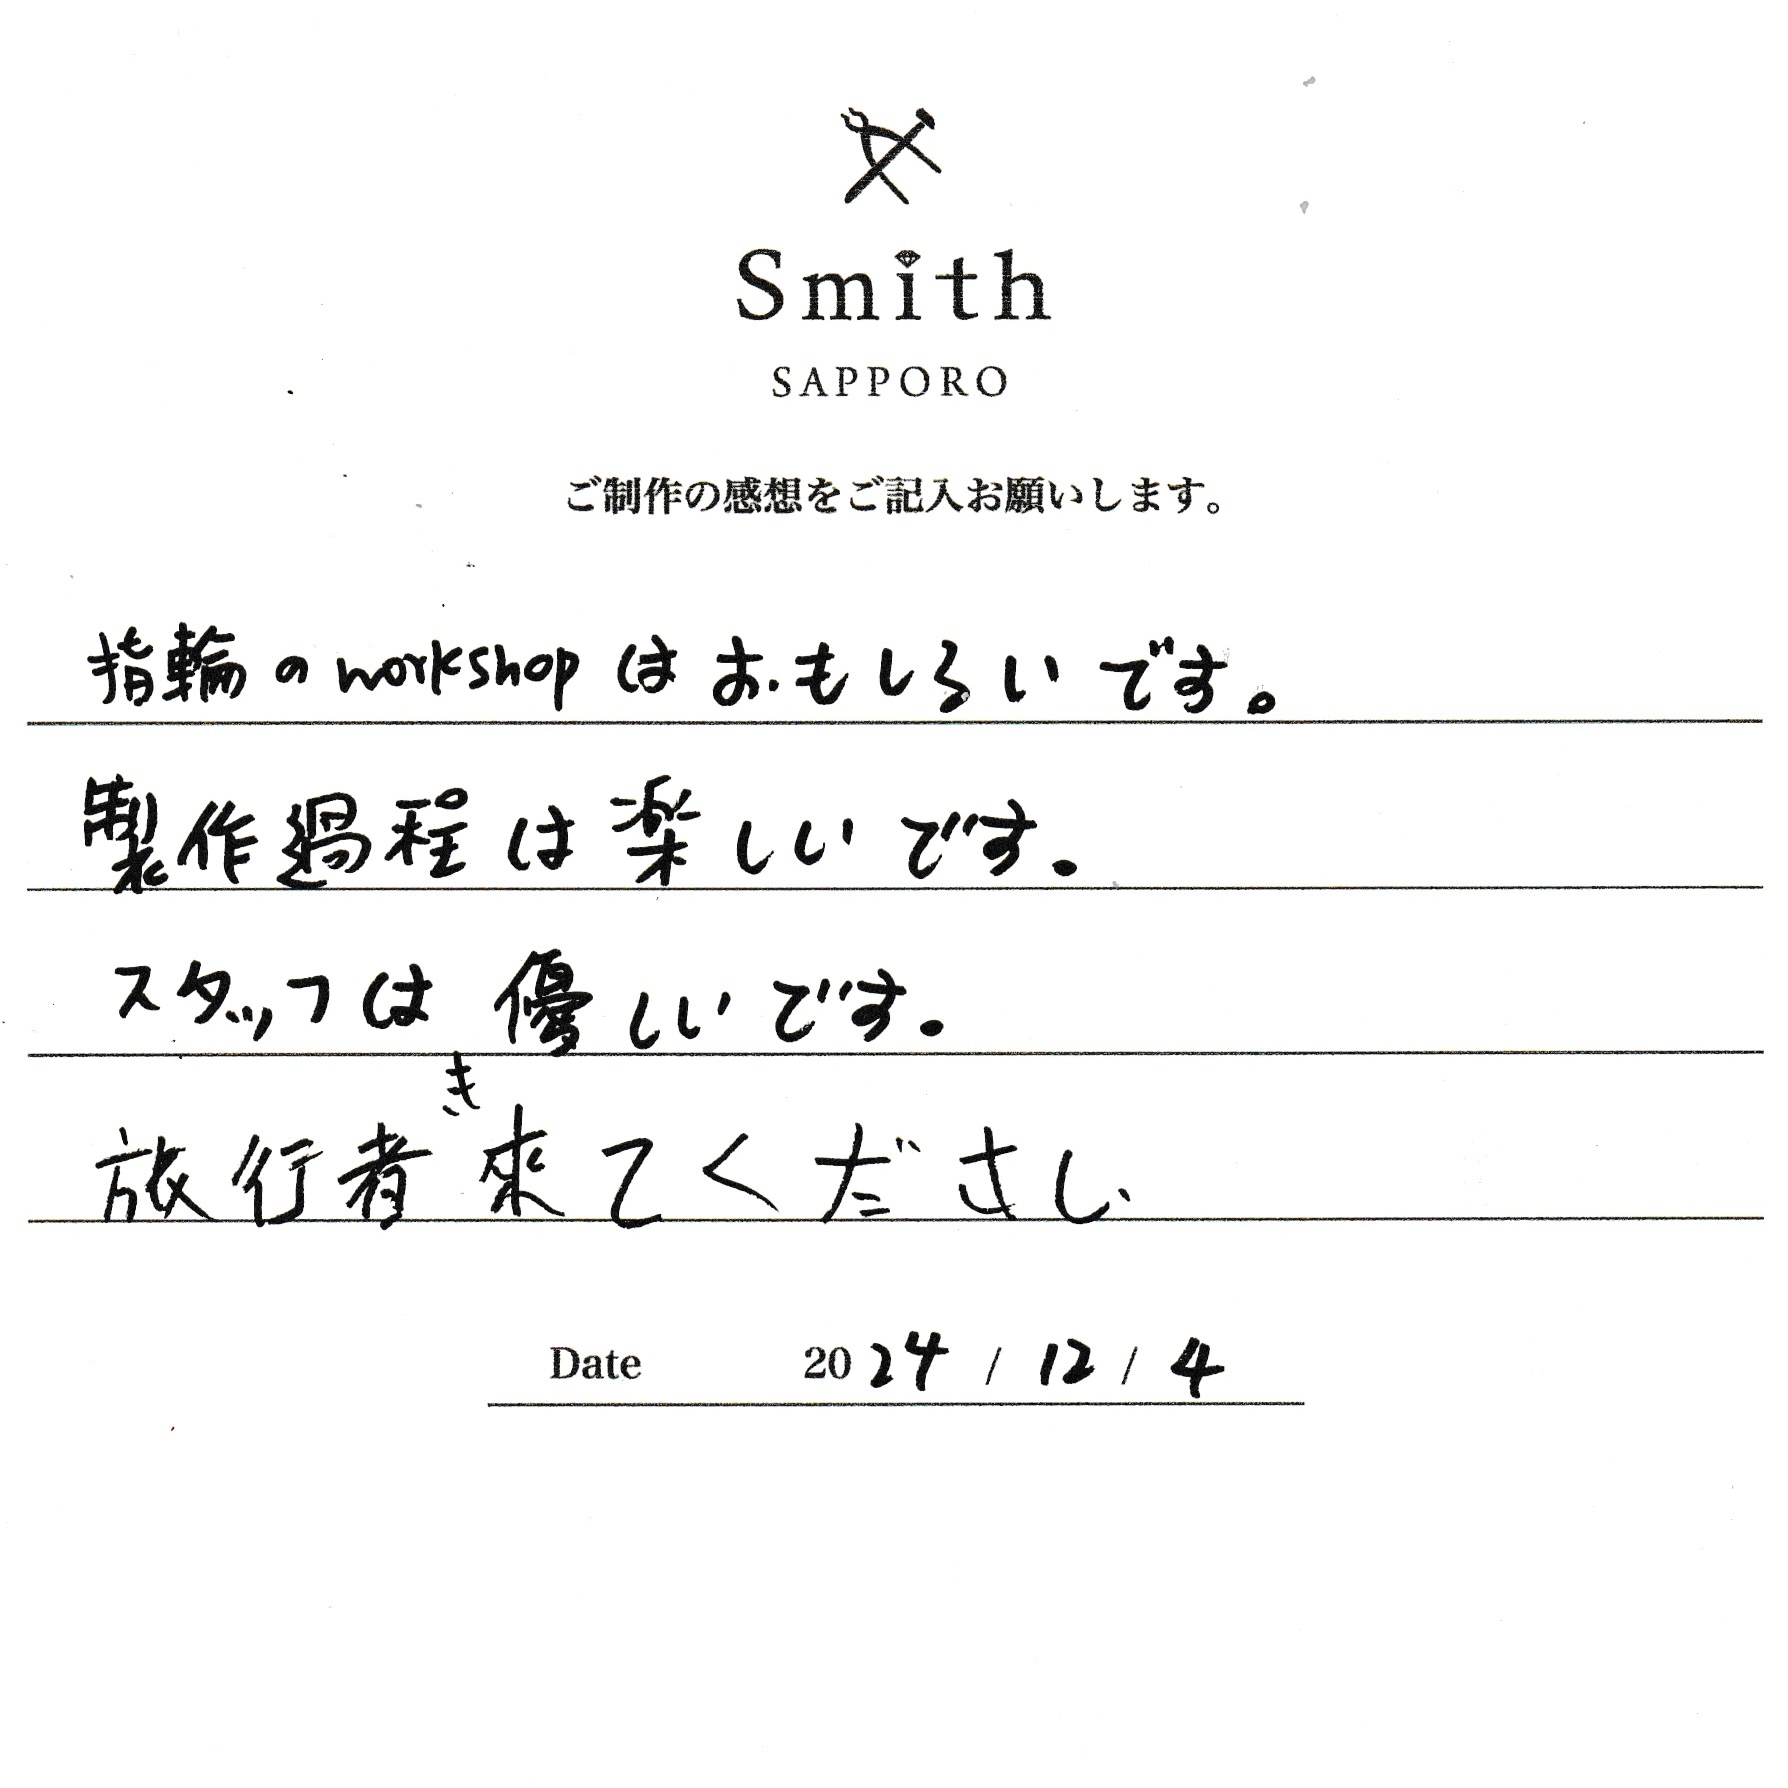 Smith
SAPPORO
ご制作の感想をご記入お願いします。
指輪のworkshopはおもしろいです。
製作過程は楽しいです。
スタッフは優しいです。
き
旅行者來てください
Date 2024 / 12 / 4